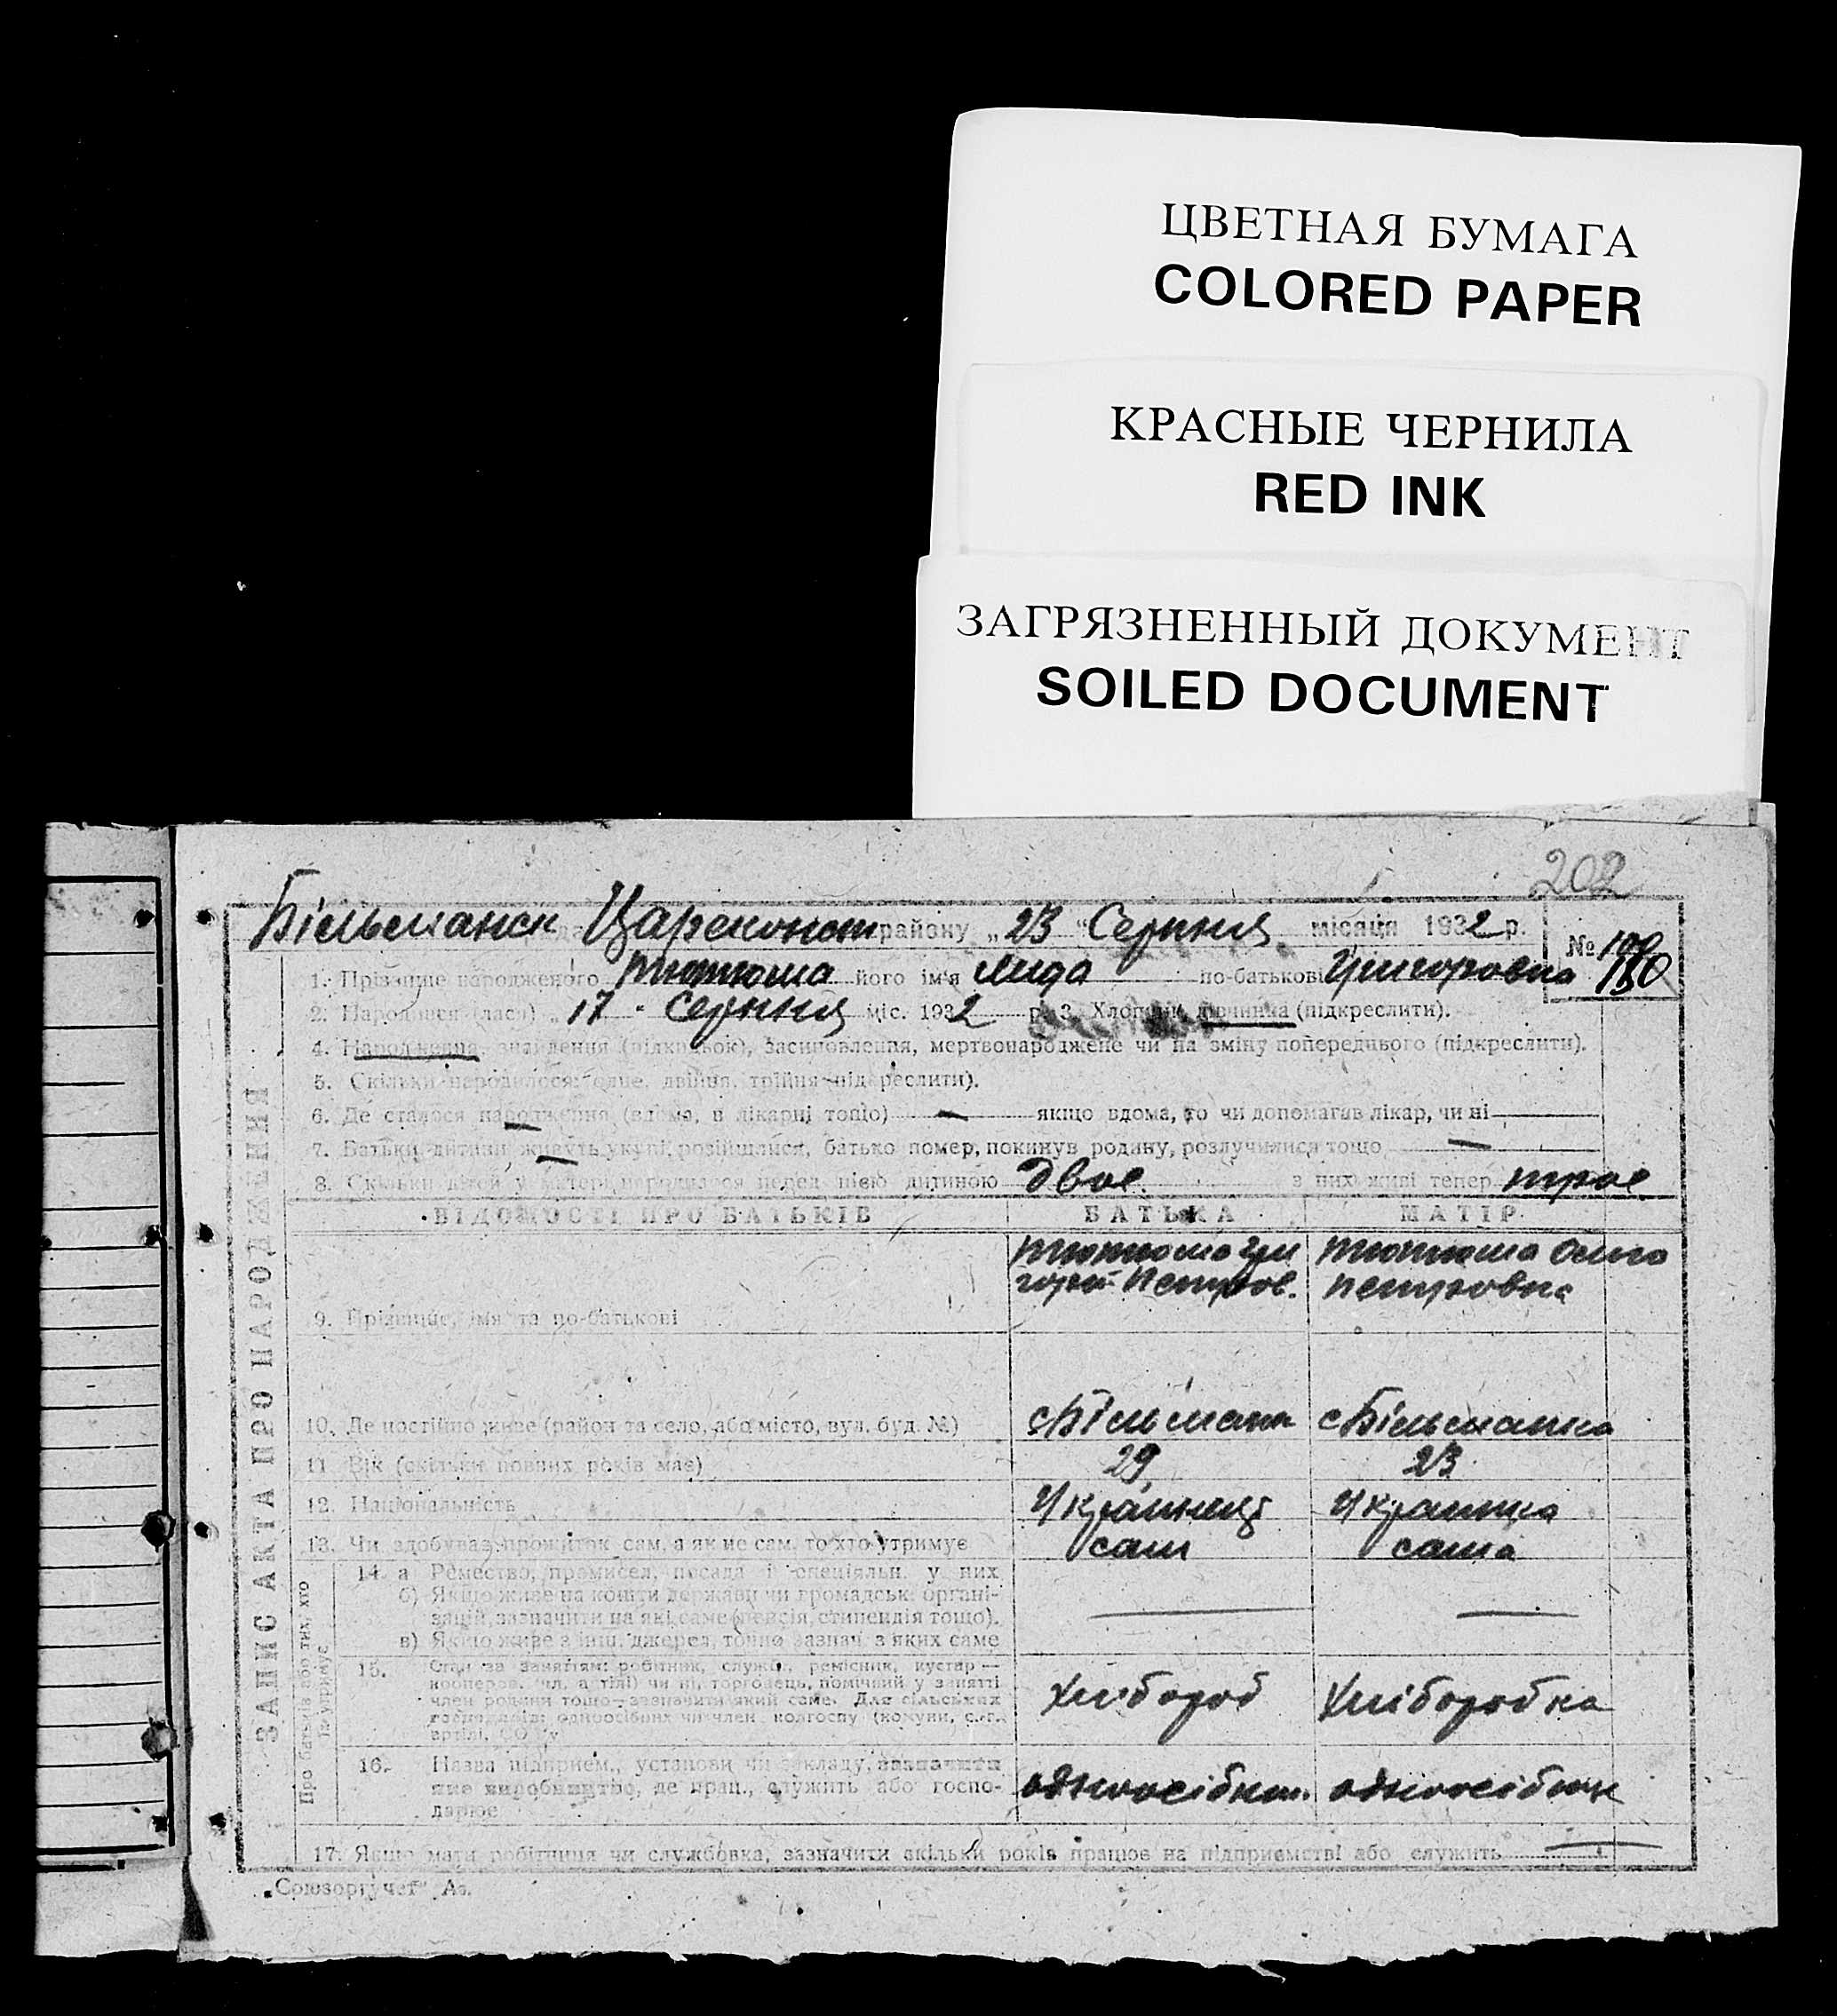 ЦВЕТНАЯ БУМАГА
COLORED PAPER
КРАСНЫЕ ЧЕРНИЛА
RED INK
ЗАГРЯЗНЕННЫЙ ДОКУМЕНТ
SOILED DOCUMENT
202
Більманск Цареконст району „23“ Серпня місяця 1932 р.
№ 150
1. Прізвище народженого Тютюма його ім'я Лида по-батькові Григоровна
2. Народився (лася) „17 Серпня міс. 1932 р. 3. Хлопчик, дівчинка (підкреслити).
4. Народження, знайдення (підкидьок), засиновлення, мертвонароджене чи на зміну попереднього (підкреслити).
5. Скільки народилося: одне, двійня, трійня (підкреслити).
6. Де сталося народження (вдома, в лікарні тощо) — якщо вдома, то чи допомагав лікар, чи ні
7. Батьки дитини живуть укупі, розійшлися, батько помер, покинув родину, розлучилися тощо —
8. Скільки дітей у матері народилося перед цією дитиною двое. з них живі тепер трое
ВІДОМОСТІ ПРО БАТЬКІВ БАТЬКА МАТІР
Тютюма Гри Тютюма Ольга
горій Петров. Петровна
9. Прізвище, ім'я та по-батькові
10. Де постійно живе (район та село, або місто, вул. буд. №) с Більманка с Більманка
11. Вік (скільки повних років має) 29 23
12. Національність Українець Українка
13. Чи здобував прожиток сам, а як не сам, то хто утримує сам сама
ЗАПИС АКТА ПРО НАРОДЖЕННЯ
Про батьків або тих, хто
та утримує
14. а Ремество, промисел, посада і спеціяльн. у них
б) Якщо живе на кошти держави чи громадськ. органі-
зацій, зазначити на які саме (пенсія, стипендія тощо).
в) Якщо живе з інш. джерел, точно зазнач. з яких саме
15. Стан за заняттям: робітник, служб., ремісник, кустар—
кооперов. (чл. артілі) чи ні, торговець, помічний у занятті
член родини тощо—зазначити який саме. Для сільських
господарів: одноосібник чи член колгоспу (комуни, с.-г.
артілі, СОЗ'у)
Хлібороб Хліборобка
16. Назва підприєм., установи чи закладу, зазначити
яке виробництво, де прац., служить або госпо-
дарює
одноосібник. одноосібник
17. Якщо мати робітниця чи службовка, зазначити скільки років працює на підприємстві або служить
„Союзоргучет“